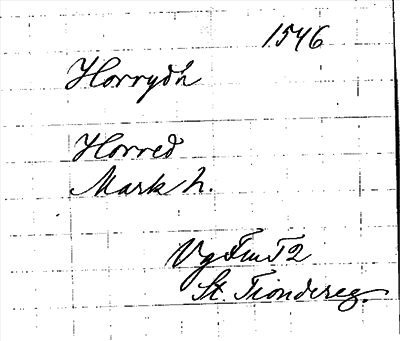 1546
Horrydh
Horred
Mark h.
Vg Fru T2
St. Tiondereg.